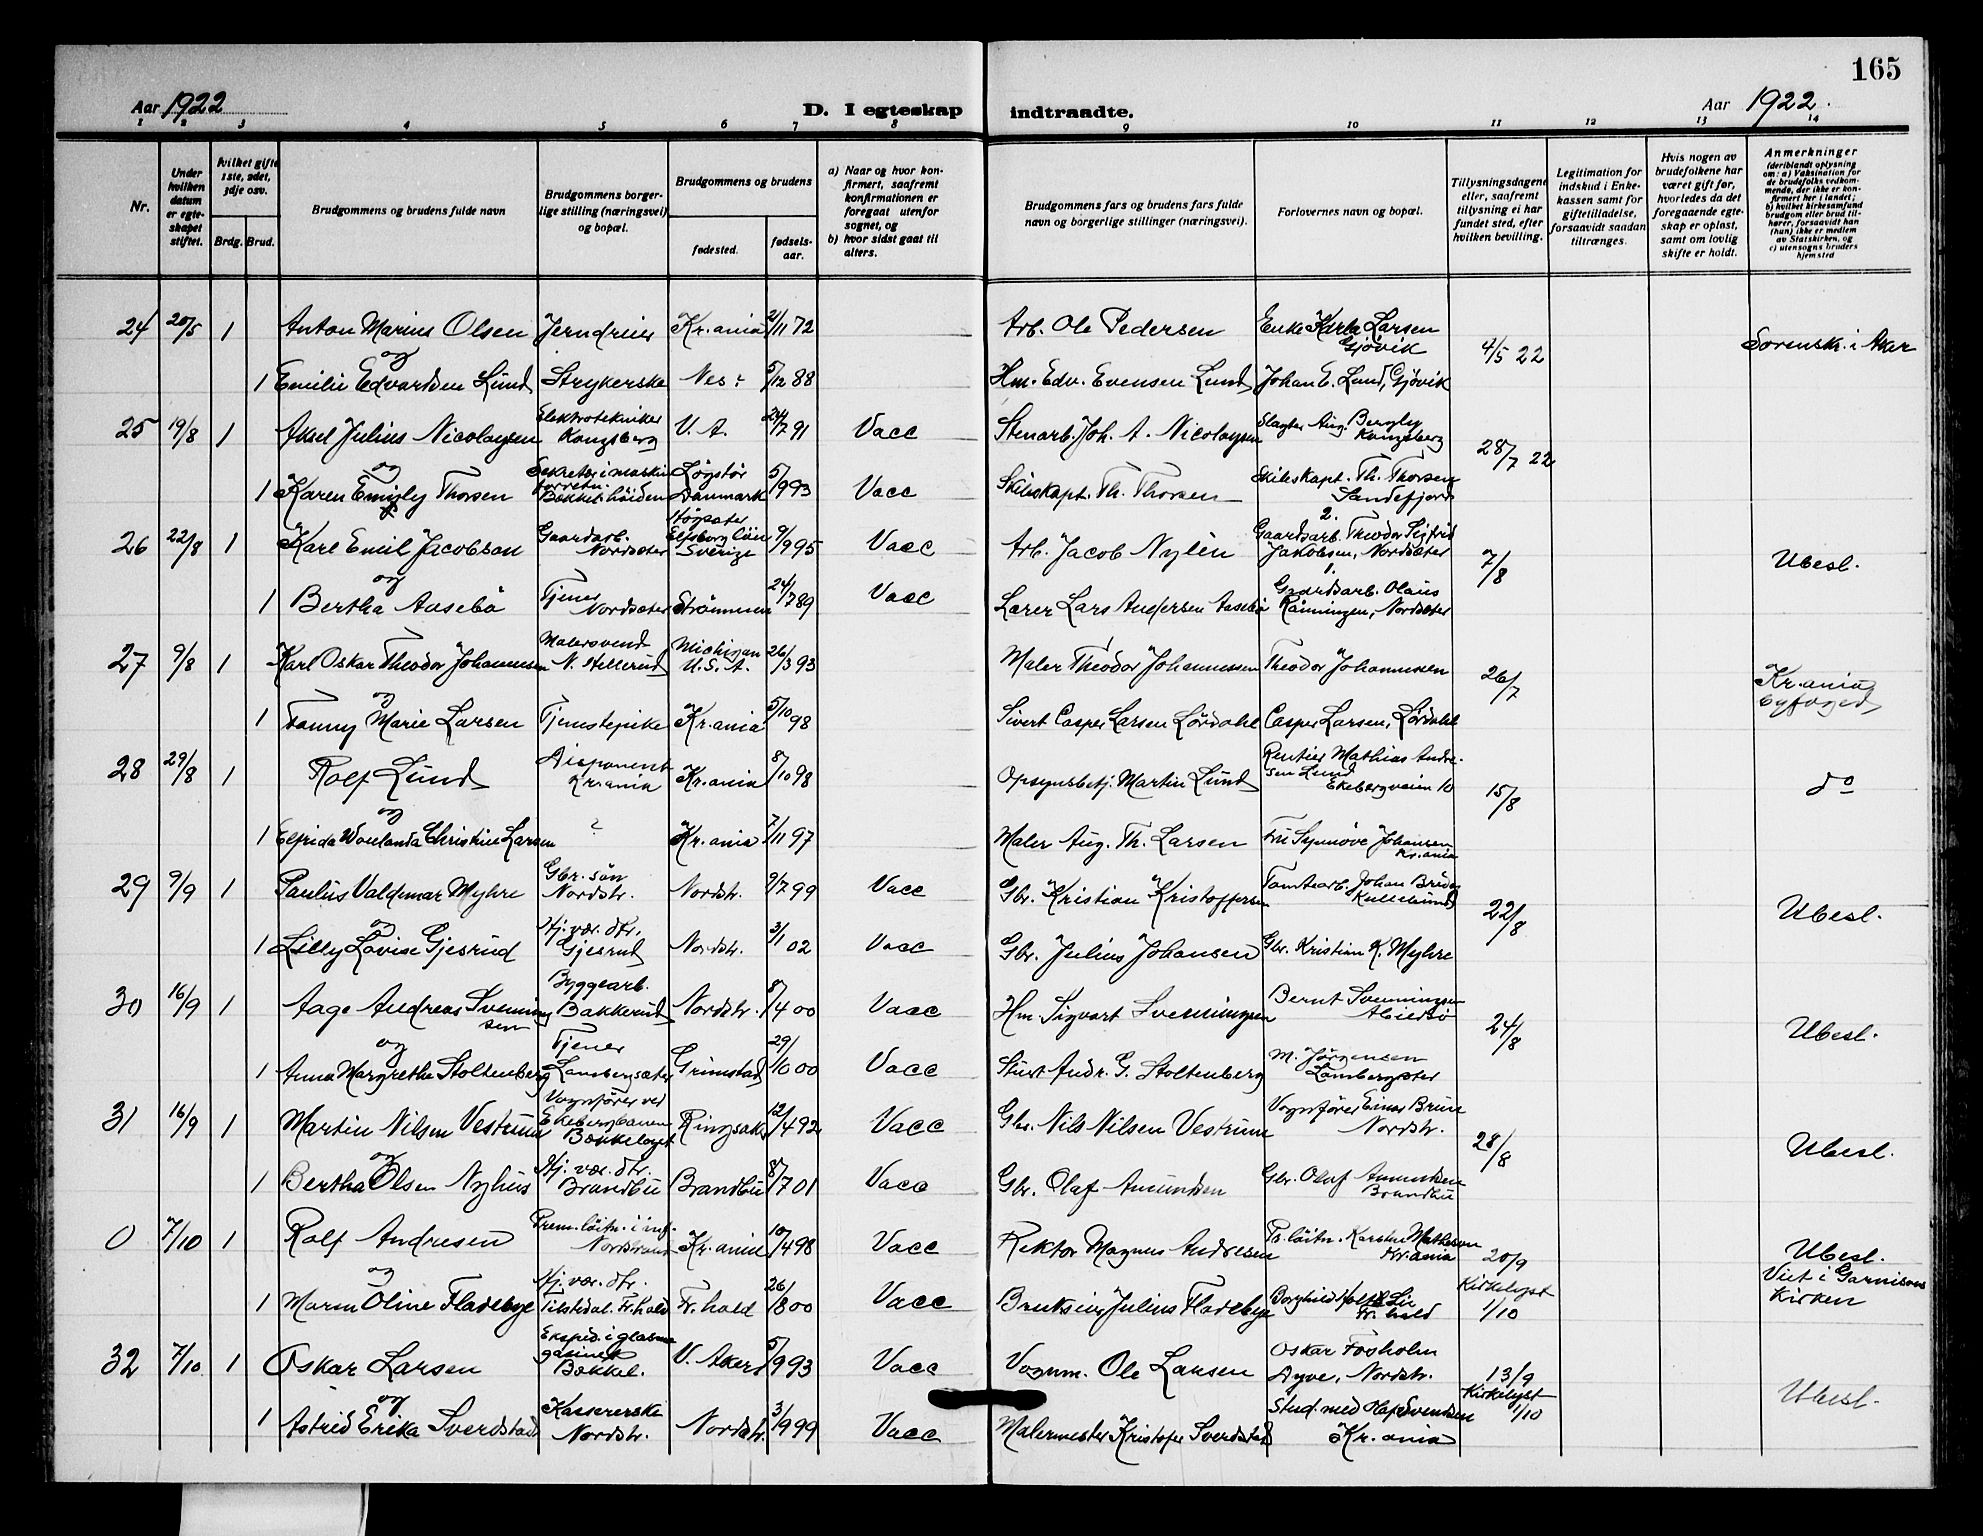 165
Aar 1922
D. I egteskap indtraadte.
Aar 1922.
1 2 3 4 5 6 7 8 9 10 11 12 13 14
Nr.
Under hvilken datum er egte-skapet stiftet.
hvilket gifte 1ste, 2det, 3dje osv.
Brdg. Brud.
Brudgommens og brudens fulde navn
Brudgommens borger-lige stilling (næringsvei) og bopæl.
Brudgommens og brudens
fødested.
fødsels-aar.
a) Naar og hvor kon-firmert, saafremt konfirmationen er foregaat utenfor sognet, og
b) hvor sidst gaat til alters.
Brudgommens fars og brudens fars fulde navn og borgerlige stillinger (næringsvei).
Forlovernes navn og bopæl.
Tillysningsdagene eller, saafremt tillysning ei har fundet sted, efter hvilken bevilling.
Legitimation for indskud i Enke-kassen samt for giftetilladelse, forsaavidt saadan tiltrænges.
Hvis nogen av brudefolkene har været gift før, hvorledes da det foregaaende egte-skap er opløst, samt om lovlig skifte er holdt.
Anmerkninger (deriblandt oplysning om: a) Vaksination for de brudefolks vedkom-mende, der ikke er kon-firmert her i landet; b) hvilket kirkesamfund brudgom eller brud til-hører, forsaavidt han (hun) ikke er medlem av Statskirken, og c) utensogns bruders hjemsted
24 20/5 1 Anton Marius Olsen Jerndreier Kr.ania 2/11 72 Arb. Ole Pedersen Enke Karla Larsen Gjøvik 4/5 22 Sorensk. i Aker
og
1 Emilie Edvardsen Lund Strykerske Nes: 5/12 88 Hm. Edv. Evensen Lund Johan E. Lund, Gjøvik
25 19/8 1 Aksel Julius Nicolaysen Elektrotekniker Kongsberg V. A. 24/7 91 Vacc Stenarb. Joh. A. Nicolaysen Slagter Aug. Bergby Kongsberg 28/7 22
og
1 Karen Emily Thorsen Sekretær i maskin forretn. Bækkel.høiden Løgstør Danmark 5/9 93 Vacc Skibskapt. Th. Thorsen Skibskapt. Th. Thorsen Sandefjord
26 22/8 1 Karl Emil Jacobson Gaardarb. Nordsæter Högsäter Elfsborg län Sverige 9/9 95 Vacc Arb. Jacob Nylén 2. Gaardsarb. Theodor Sigfrid Jakobsen, Nordsæter 7/8 Ubesl.
og
1 Bertha Aasebø Tjener Nordsæter Strømmen 24/7 89 Vacc Lærer Lars Andersen Aasebø 1. Gaardsarb. Olaus Rønningen, Nordsæter
27 9/8 1 Karl Oskar Theodor Johannesen Malersvend N. Stellerud Michigan U.S.A. 26/3 93 Maler Theodor Johannessen Theodor Johannessen 26/7 Kr.ania Byfoged
og
1 Fanny Marie Larsen Tjenestepike Kr.ania 5/10 98 Sivert Casper Larsen Lørdahl Casper Larsen, Lørdahl
28 29/8 1 Rolf Lund Disponent Kr.ania Kr.ania 8/10 98 Opsynsbetj. Martin Lund Rentier Mathias Andre-sen Lund Ekebergveien 10 15/8 do
og
1 Elfrida Wonlanda Christine Larsen ? Kr.ania 7/11 97 Maler Aug. Th. Larsen Fru Synnøve Johansen Kr.ania
29 9/9 1 Paulus Valdemar Myhre Gbr. søn Nordstr. Nordstr. 9/7 99 Vacc Gbr. Kristian Kristoffersen Tomtearb. Johan Kullebund 22/8 Ubesl.
og
1 Lilly Lovise Gjesrud Hj. vær. dtr. Gjesrud Nordstr. 3/1 02 Vacc Gbr. Julius Johansen Gbr. Kristian K. Myhre
30 16/9 1 Aage Andreas Svenningsen Byggearb. Bakkerud Nordstr. 8/4 00 Vacc Hm. Sigvart Svenningsen Bernt Svenningsen 24/8 Ubesl.
og
1 Anna Margrethe Stoltenberg Tjener Lambergsæter Grimstad 29/10 00 Vacc Andr. G. Stoltenberg M. Jørgensen Lambergsæter
31 16/9 1 Martin Nilsen Vestrum Vognfører ved Ekebergbanen Bækkelaget Ringsaker 12/4 92 Vacc Gbr. Nils Nilsen Vestrum Vognfører Einar Bruu Nordstr. 28/8 Ubesl.
og
1 Bertha Olsen Nyhus Hj. vær. dtr. Brandbu Brandbu 8/7 01 Vacc Gbr. Olaf Amundsen Gbr. Olaf Amundsen Brandbu
0 7/10 1 Rolf Andresen Prem.løitn. i inf. Nordstrand Kr.ania 10/4 98 Vacc Rektor Magnus Andresen Pr. løitn. Karsten Mathesen Kr.ania 20/9 Ubesl.
og
1 Maren Oline Fladebye Hj. vær. dtr. Tistedal. Fr.hald Fr. hald 26/8 00 Vacc Brukseier Julius Fladebye Borghild Lie Fr. hald Kirkelyst 1/10 Viet i Garnisons Kirken
32 7/10 1 Oskar Larsen Eksped. i glasma-gasinet Bækkel. V. Aker 5/9 93 Vacc Vognm. Ole Larsen Oskar Fosholm Nordstr. 13/9 Ubesl.
og
1 Astrid Erika Sverdstad Kassererske Nordstr. Nordstr. 3/9 99 Vacc Malermester Kristofer Sverdstad Stud. med Olaf Svendsen Kr.ania Kirkelyst 1/10